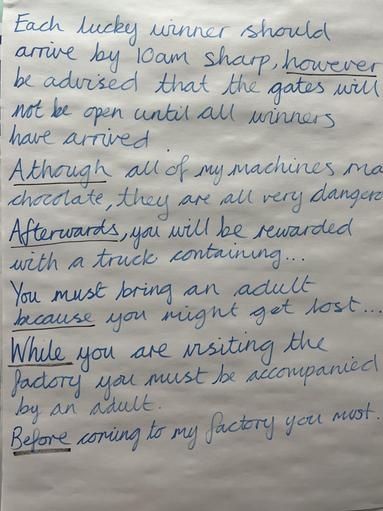 Each lucky winner should
arrive by 10am sharp, however
be advised that the gates will
not be open until all winners
have arrived
Athough all of my machines ma
chocolate, they are all very dangero
Afterwards, you will be rewarded
with a truck containing...
You must bring an adult
because you might get lost...
While you are visiting the
factory you must be accompanied
by an adult.
Before coming to my factory you must.